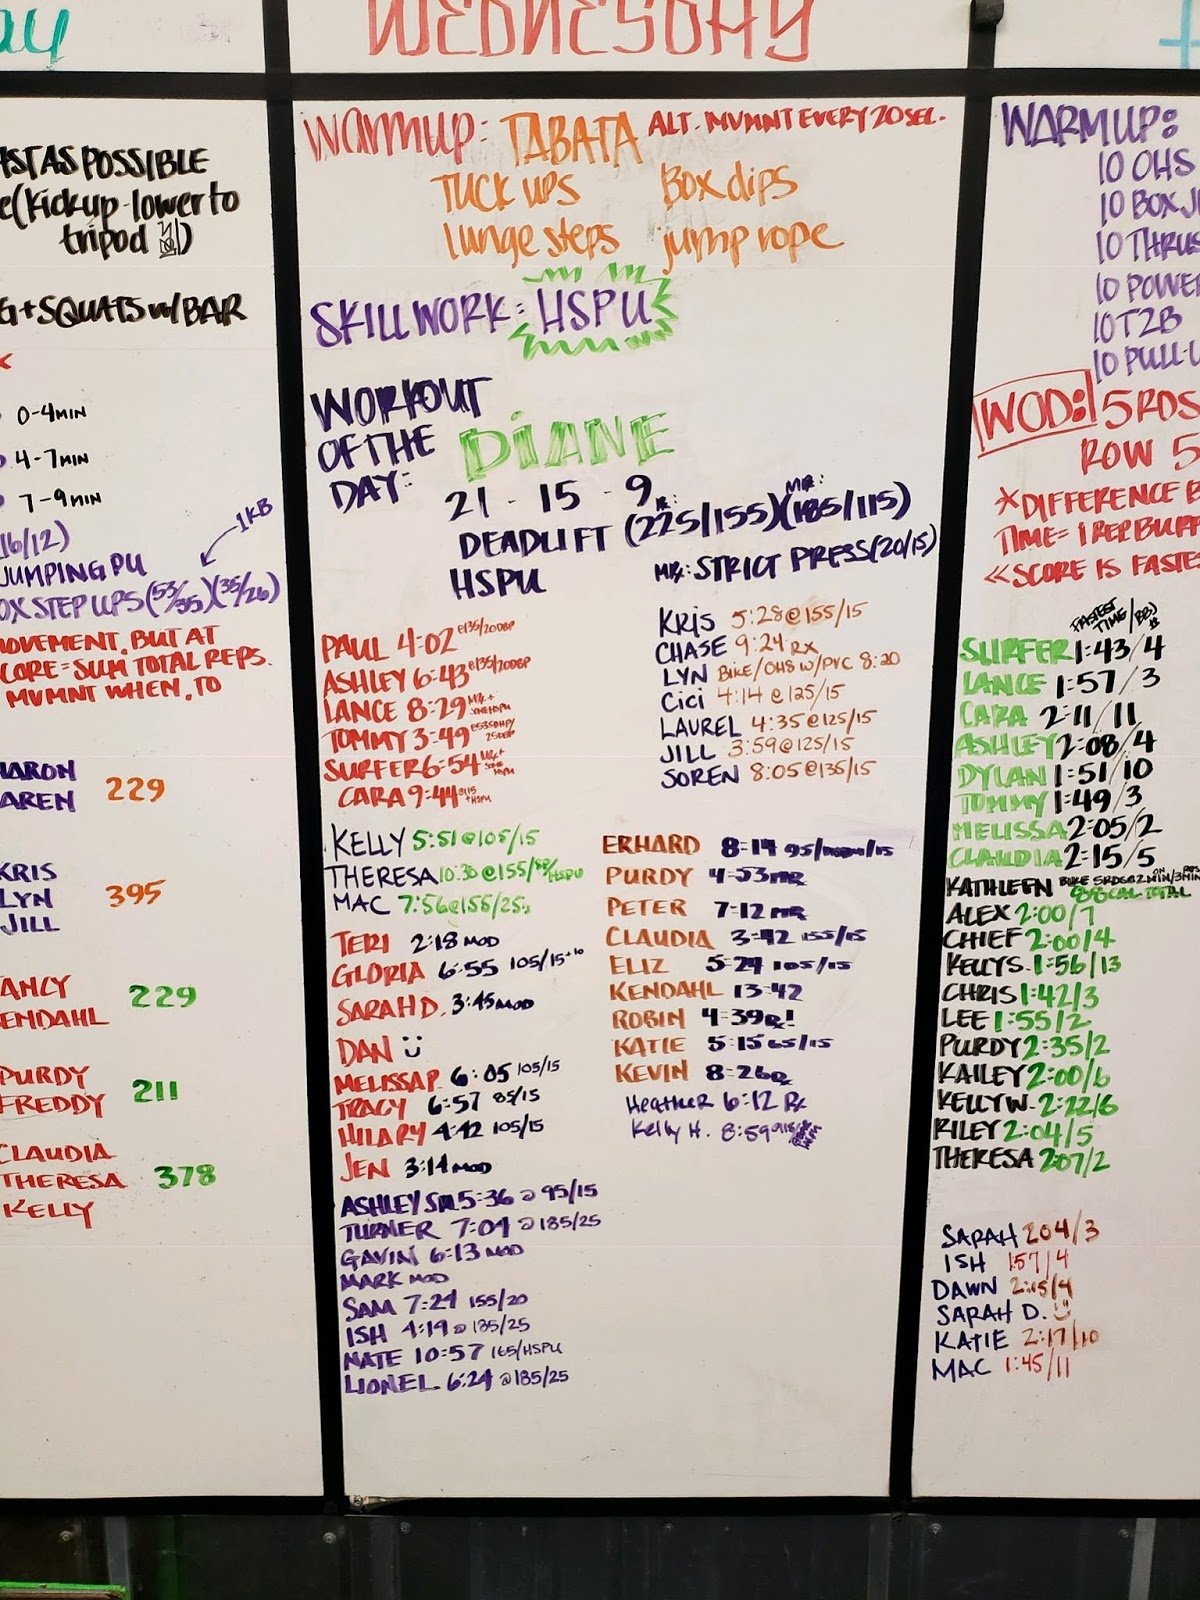 WEDNESDAY
AST AS POSSIBLE
e(Kickup-lower to
tripod
G+SQUATS w/ BAR
0-4MIN
4-7MIN
7-9MIN
1KB
16/12)
JUMPING PU
OX STEP UPS (53/35)(35/26)
MOVEMENT, BUT AT
CORE=SUM TOTAL REPS.
MVMNT WHEN, TO
HARON
AREN 229
KRIS
LYN 395
JILL
ANCY 229
ENDAHL
PURDY 211
FREDDY
CLAUDIA
THERESA 378
KELLY
WARMUP: TABATA ALT. MVMNT EVERY 20 SEC.
TUCK UPS BOX dips
lunge steps jump rope
SKILL WORK: HSPU
WORKOUT
OF THE DIANE
DAY:
21 - 15 - 9
DEADLIFT (225/155)(185/115)
HSPU MRX: STRICT PRESS (20/15)
PAUL 4:02
ASHLEY 6:43
LANCE 8:29
TOMMY 3:49
SURFER 6:54
CARA 9:44
KRIS 5:28@155/15
CHASE 9:24 RX
LYN BIKE/OHS W/PVC 8:20
CiCi 4:14 @125/15
LAUREL 4:35@125/15
JILL 3:59@125/15
SOREN 8:05@135/15
KELLY 5:51@105/15
THERESA 10:30 @155/
MAC 7:56@155/25s
TERI 2:18 MOD
GLORIA 6:55 105/15
SARAH D. 3:45 MOD
DAN
MELISSA P. 6:05 105/15
TRACY 6:57 85/15
HILARY 4:42 105/15
JEN 3:14 MOD
ASHLEY SM 5:36 @ 95/15
TURNER 7:04 @ 185/25
GAVIN 6:13 MOD
MARK MOD
SAM 7:24 155/20
ISH 4:19 @ 185/25
NATE 10:57 165/HSPU
LIONEL 6:24 @185/25
ERHARD 8:14 95/
PURDY 4:53 MRX
PETER 7:12 MRX
CLAUDIA 3:42 155/15
ELIZ 5:24 105/15
KENDAHL 13:42
ROBIN 4:39 Rx!
KATIE 5:15 65/15
KEVIN 8:26 Rx
Heather 6:12 Rx
Kelly H. 8:59
WARMUP:
10 OHS
10 BOX J
10 THRUS
10 POWER
10 T2B
10 PULL-U
WOD: 5 RDS
ROW 5
*DIFFERENCE B
TIME= 1 REP BURP
<<SCORE IS FASTES
FASTEST
TIME/BBJ
SURFER 1:43/4
LANCE 1:57/3
CARA 2:11/11
ASHLEY 2:08/4
DYLAN 1:51/10
TOMMY 1:49/3
MELISSA 2:05/2
CLAUDIA 2:15/5
KATHLEEN BIKE 5RDS@2MIN/3MIN
88 CAL TOTAL
ALEX 2:00/7
CHIEF 2:00/4
KELLY S. 1:56/13
CHRIS 1:42/3
LEE 1:55/2
PURDY 2:35/2
KAILEY 2:00/6
KELLY W. 2:22/6
RILEY 2:04/5
THERESA 2:07/2
SARAH 2:04/3
ISH 1:57/4
DAWN 2:05/4
SARAH D.
KATIE 2:17/10
MAC 1:45/11